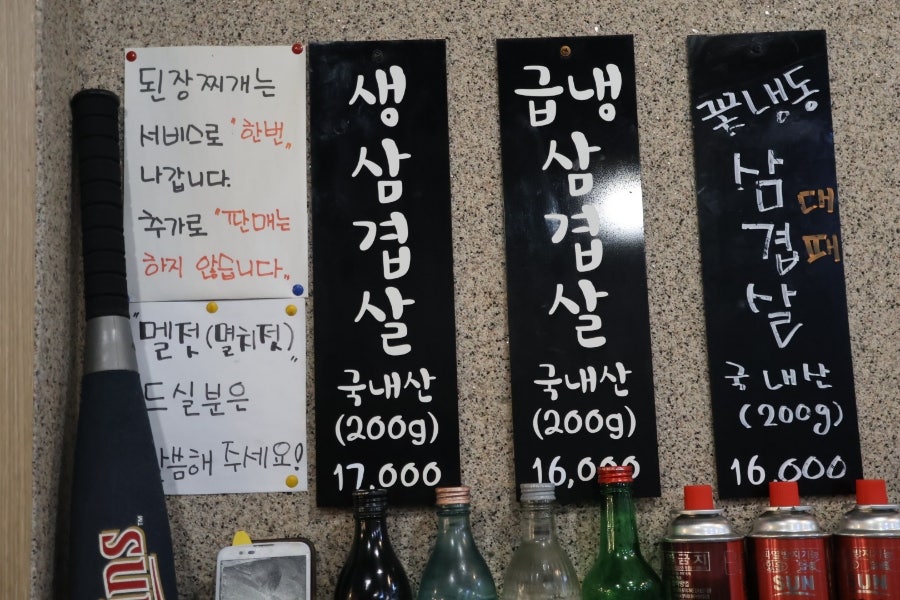 된장찌개는
서비스로 "한번"
나갑니다.
추가로 "판매는
하지 않습니다"
"멜젓(멸치젓)"
드실분은
말씀해 주세요!
생
삼
겹
살
국내산
(200g)
17,000
급냉
삼
겹
살
국내산
(200g)
16,000
꽃냉동
삼
겹
살
대
패
국내산
(200g)
16,000
SUN